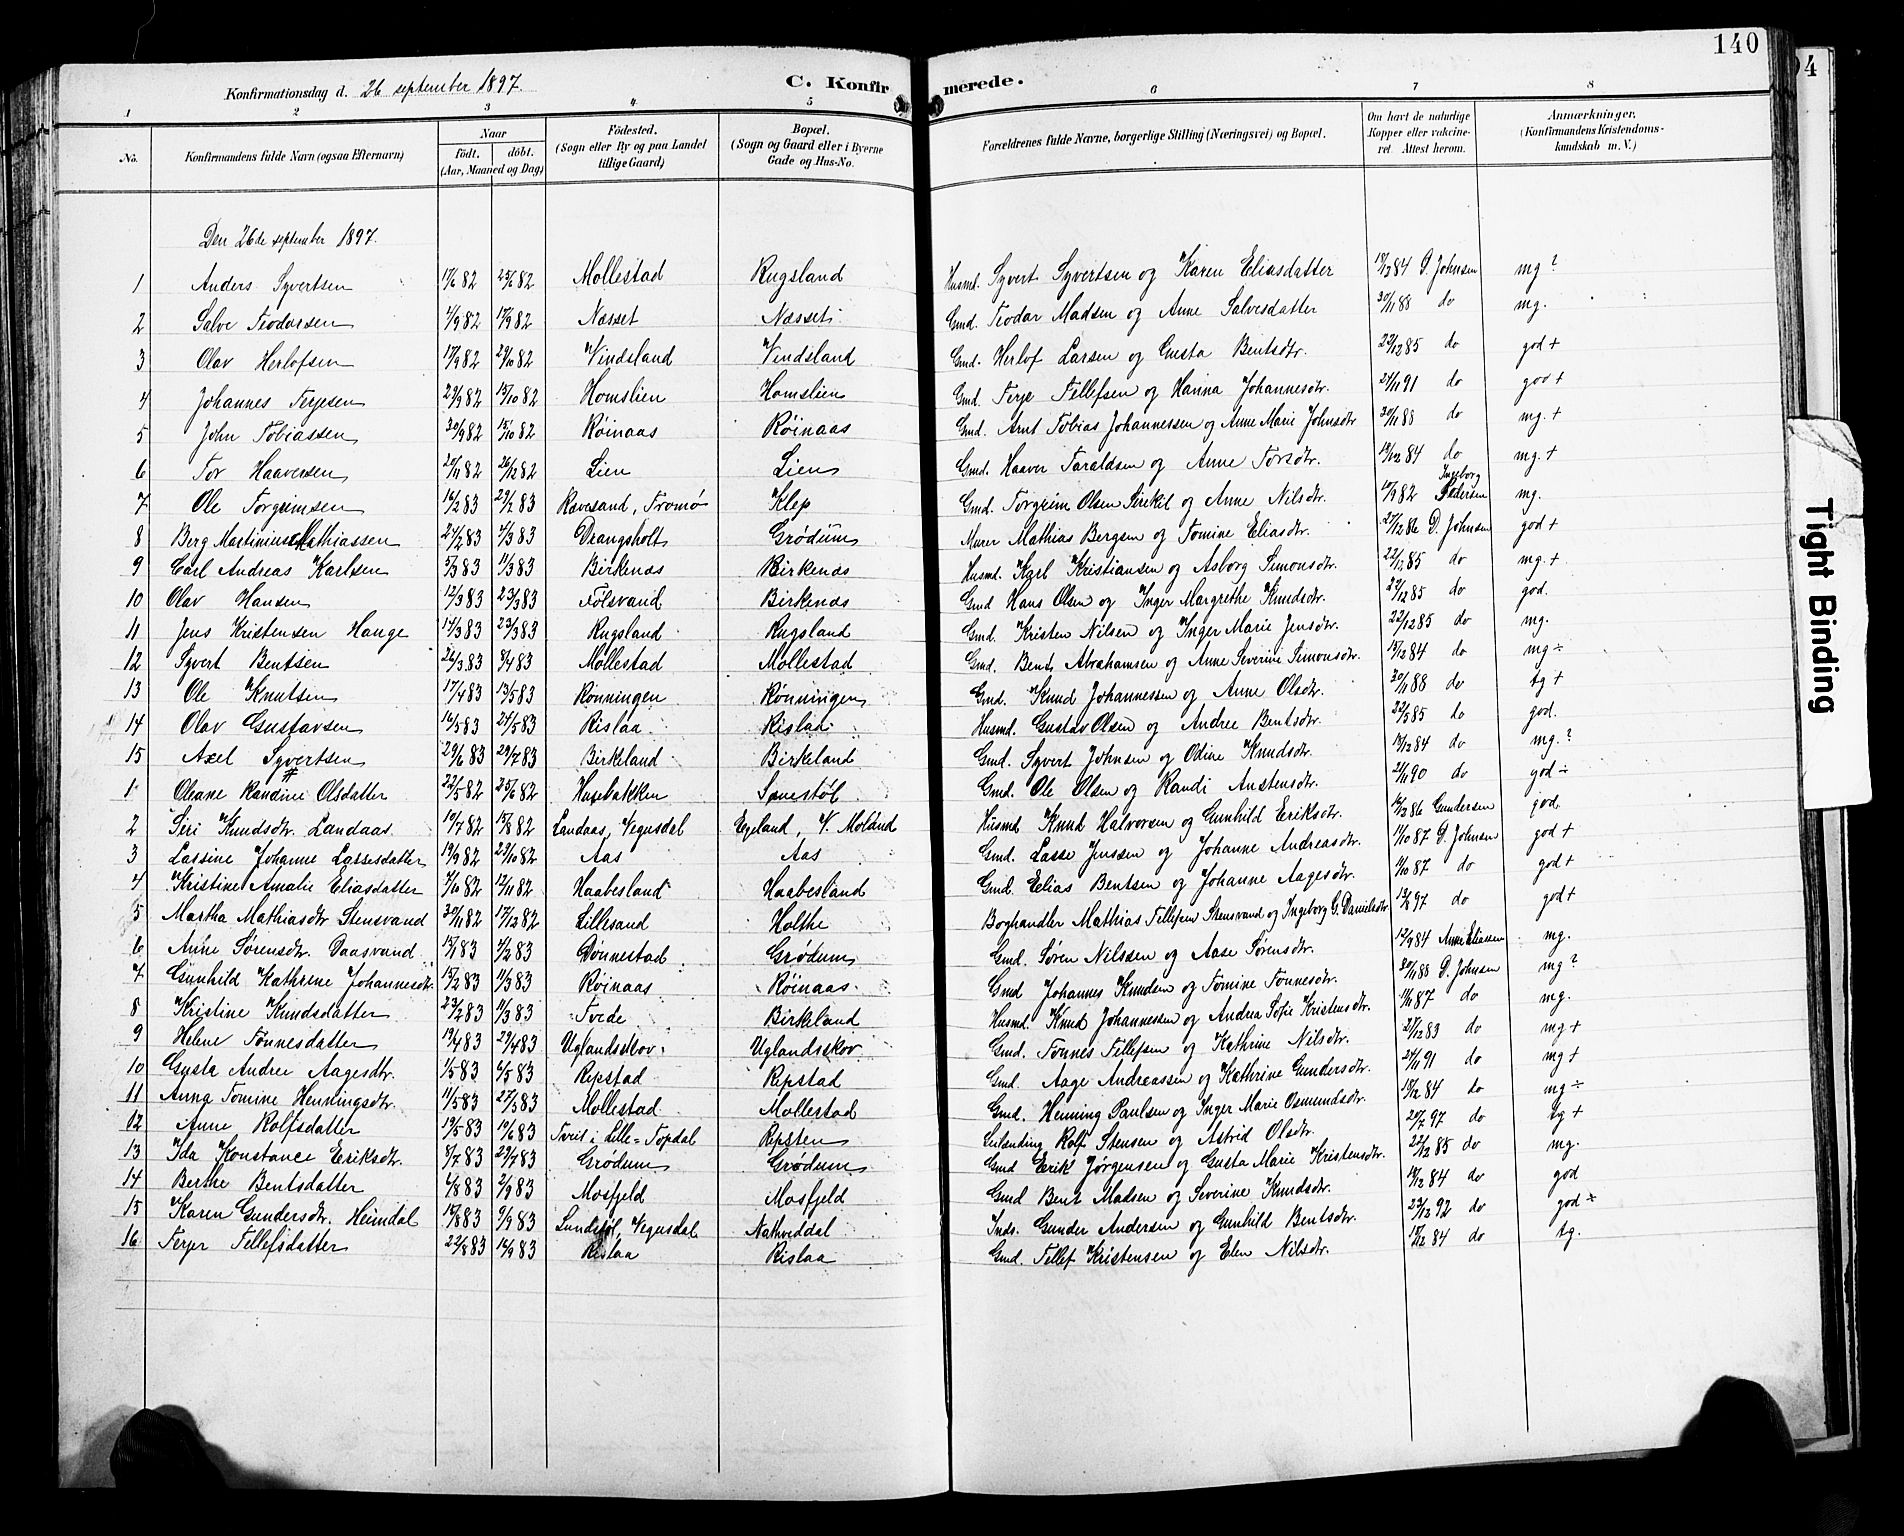 140
Konfirmationsdag d. 26 september 1897.
C. Konfirmerede.
1 2 3 4 5 6 7 8
No. Konfirmandens fulde Navn (ogsaa Efternavn) Naar født. døbt. (Aar, Maaned og Dag) Fødested. (Sogn eller By og paa Landet tillige Gaard) Bopæl. (Sogn og Gaard eller i Byerne Gade og Hus-No. Forældrenes fulde Navne, borgerlige Stilling (Næringsvei) og Bopæl. Om havt de naturlige Kopper eller vakcineret. Attest herom. Anmærkninger. (Konfirmandens Kristendomskundskab m. V.)
Den 26de september 1897.
1 Anders Syvertsen 17/6 82 25/6 82 Mollestad Rugsland Husmd. Syvert Syvertsen og Karen Eliasdatter 84 D. Johnsen mg ?
2 Salve Teodorsen 4/9 82 17/9 82 Næsset Næsset Gmd. Teodor Madsen og Anne Salvesdatter 30/11 88 do mg.
3 Olav Herlofsen 17/9 82 29/10 82 Vindsland Vindsland Gmd. Herlof Larsen og Gusta Bentsdtr. 29/12 85 do god +
4 Johannes Terjesen 29/9 82 15/10 82 Homslien Homslien Gmd. Terje Tellefsen og Hanna Johannesdtr. 24/11 91 do god +
5 John Tobiassen 30/9 82 15/10 82 Røinaas Røinaas Gmd. Arnt Tobias Johannessen og Anne Marie Johnsdtr 30/11 88 do mg. +
6 Tor Haaversen 20/11 82 26/12 82 Lien Lien Gmd. Haaver Taraldsen og Anne Torsdtr. 84 do mg. +
7 Ole Torgrimsen 16/2 83 29/2 83 Ravesand, Tromø Klep Gmd. Torgrim Olsen Sirekil og Anne Nilsdtr. 82 Ingeborg Pedersen mg.
8 Berg Martinius Mathiassen 24/2 83 4/3 83 Drangsholt Grødum Murer Mathias Bergsen og Tomine Eliasdtr. 27/12 86 D. Johnsen god +
9 Carl Andreas Karlsen 5/3 83 11/3 83 Birkenæs Birkenæs Husmd. Karl Kristiansen og Asborg Simonsdtr. 22/12 85 do mg. +
10 Olav Hansen 12/3 83 23/3 83 Følsvand Birkenæs Gmd Hans Olsen og Inger Margrethe Knudsdtr. 27/12 85 do god.
11 Jens Kristensen Hauge 14/3 83 23/3 83 Rugsland Rugsland Gmd. Kristen Nilsen og Inger Marie Jensdtr. 22/12 85 do mg.
12 Syvert Bentsen 26/3 83 8/4 83 Mollestad Mollestad Gmd. Bent Abrahamsen og Anne Severine Simonsdtr. 84 do mg ÷
13 Ole Knutsen 17/4 83 13/5 83 Rønningen Rønningen Gmd. Knud Johannessen og Anne Olsdtr. 30/11 88 do tg +
14 Olav Gustavsen 16/5 83 24/5 83 Rislaa Rislaa Husmd. Gustav Olsen og Andree Bentsdtr. 85 do god.
15 Axel Syvertsen 29/6 83 29/7 83 Birkeland Birkeland Gmd. Syvert Johnsen og Odine Knudsdtr. 84 do mg. ?
1 Oleane Randine Olsdatter 22/5 82 25/6 82 Husebakken Senestøl Gmd. Ole Olsen og Randi Anstensdtr. 90 do god ÷
2 Siri Knudsdtr. Landaas 10/7 82 15/8 82 Landaas, Vegusdal Egeland, V. Moland Husmd Knud Halvorsen og Gunhild Eriksdtr. 86 Gundersen god
3 Lassine Johanne Lassesdatter 19/9 82 23/10 82 Aas Aas Gmd. Lasse Jenssen og Johanne Andreasdtr. 11/10 87 D. Johnsen god +
4 Kristine Amalie Eliasdatter 7/10 82 12/11 82 Haabesland Haabesland Gmd. Elias Bentsen og Johanne Aagesdtr. 11/10 87 do god +
5 Martha Mathiasdtr Stensvand 30/11 82 17/12 82 Lillesand Holthe Boghandler Mathias Tellefsen Stensvand og Ingeborg G. Danielsdtr 97 do god +
6 Anne Sørensdtr. Daasvand 15/1 83 4/2 83 Dønnestad Grødum Gmd. Søren Nilssen og Aase Sørensdtr. 12/9 84 Anne Eliassen mg.
7 Gunhild Kathrine Johannesdtr. 15/2 83 11/3 83 Røinaas Røinaas Gmd Johannes Knudsen og Tomine Tønnesdtr. 30/11 88 D. Johnsen mg ?
8 Kristine Knudsdatter 23/2 83 11/3 83 Tvede Birkeland Husmd. Knud Johannessen og Andrea Sofie Kristensdtr. 87 do mg.
9 Helene Tønnesdatter 19/4 83 29/4 83 Uglandsskov Uglandsskov Gmd. Tønnes Tellefsen og Kathrine Nilsdtr. 27/12 83 do mg +
10 Gusta Andree Aagesdtr. 1/5 83 6/5 83 Repstad Repstad Gmd. Aage Andreassen og Kathrine Gundersdtr. 24/11 91 do mg +
11 Anna Tomine Henningsdtr. 11/5 83 27/5 83 Mollestad Mollestad Gmd. Henning Paulsen og Inger Marie Osmundsdtr. 84 do mg ÷
12 Anne Rolfsdatter 19/5 83 10/6 83 Tveit i Lille-Topdal Repsten Leilænding Rolf Stensen og Astrid Olsdtr. 20/7 97 do tg +
13 Ida Konstance Eriksdtr. 8/7 83 29/7 83 Grødum Grødum Gmd Erik Jørgensen og Gusta Marie Kristensdtr. 22/12 85 do mg.
14 Berthe Bentsdatter 6/8 83 2/9 83 Mosfjeld Mosfjeld Gmd Bent Madsen og Severine Knudsdtr. 84 do god
15 Karen Gundersdtr. Heimdal 15/8 83 9/9 83 Lundstøl, Vegusdal Nathveddal Inds. Gunder Andersen og Gunhild Bentsdtr. 92 do god ÷
16 Terjer Tellefsdatter 22/8 83 16/9 83 Rislaa Rislaa Gmd. Tellef Kristensen og Elen Nilsdtr. 84 do tg.
Tight Binding